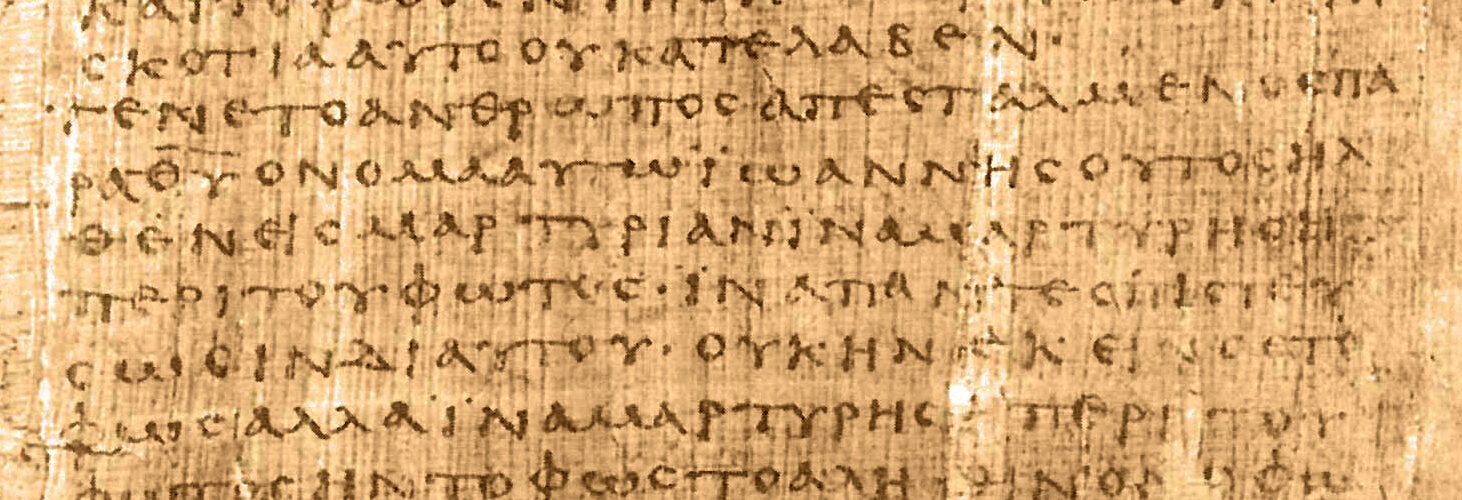 ϲκοτιααυτοουκατελαβεν·
·γενετοανθρωποϲαπεϲταλμενοϲπα
ραθ̅υ̅ονομααυτωϊωαννηϲουτοϲηλ
θενειϲμαρτυριανϊναμαρτυρηϲη
περιτουφωτοϲ·ϊναπαντεϲπιϲτευ
ϲωϲινδιαυτου·ουκηνεκεινοϲτο
φωϲαλλαϊναμαρτυρηϲηπεριτου
φωτοϲηντοφωϲτοαληθινονοφω